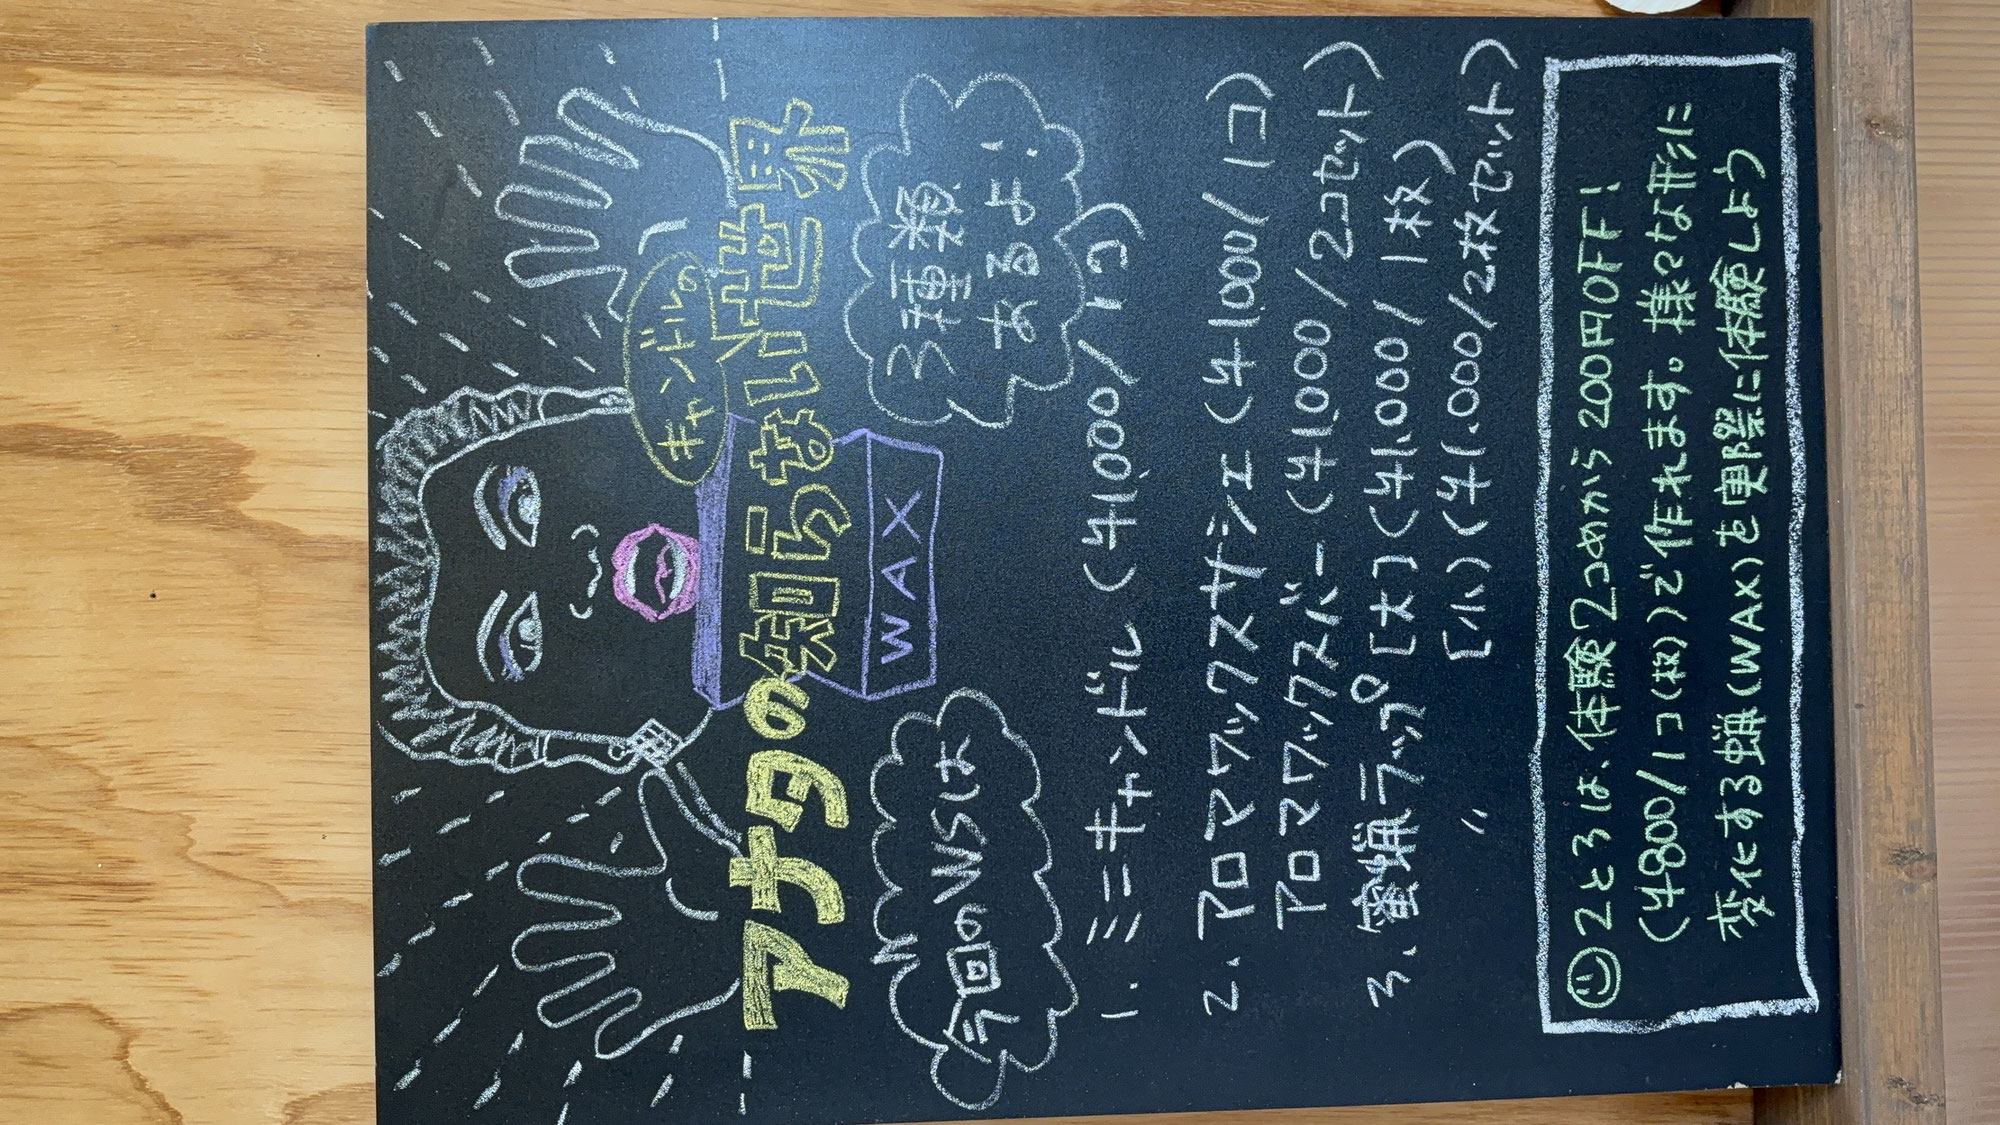 キャンドルの
アナタの知らない世界
WAX
今回のWSは
3種類
あるよ!
1. ミニキャンドル (¥1,000/1コ)
2. アロマワックスサシェ (¥1,000/1コ)
アロマワックスバー (¥1,000/2コセット)
3、蜜蝋ラップ [大] (¥1,000/1枚)
〃 [小] (¥1,000/2枚セット)
☺2とろは、体験2コめから200円OFF!
(¥800/1コ(枚))で作れます。様々な形に
変化する蝋(WAX)を実際に体験しよう